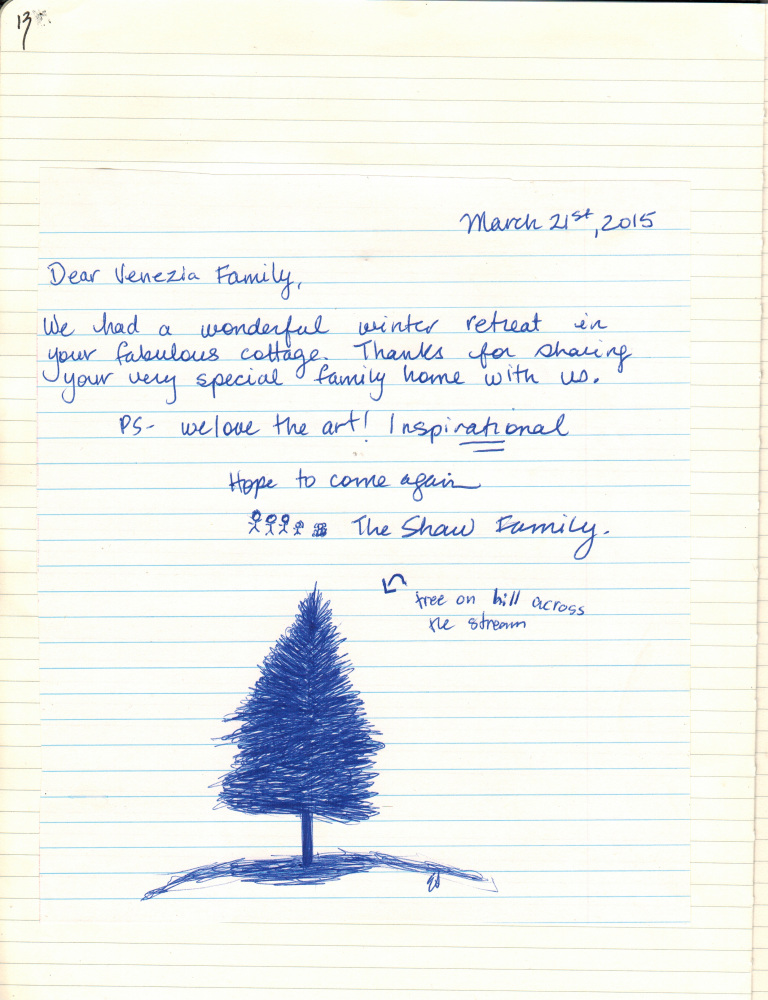 13
March 21st, 2015
Dear Venezia Family,
We had a wonderful winter retreat in
your fabulous cottage. Thanks for sharing
your very special family home with us.
PS- we love the art! Inspirational
Hope to come again
The Shaw Family.
tree on hill across
the stream